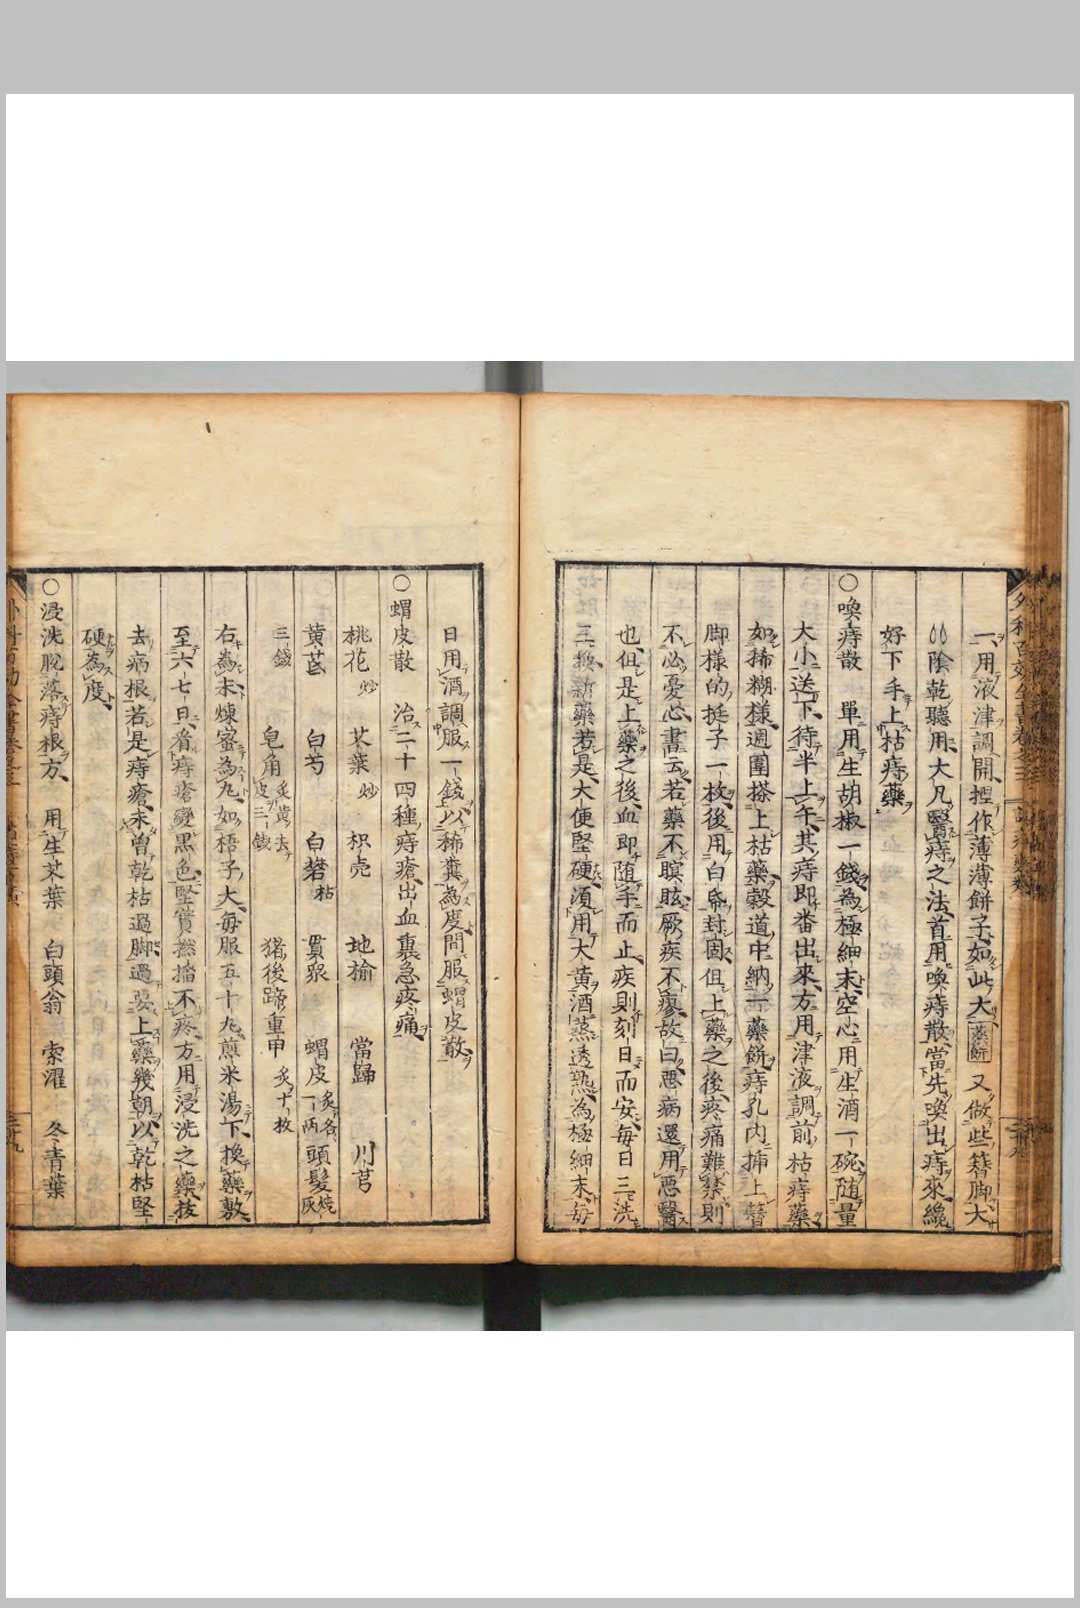 一用液津調開捏作薄薄餅子如此大藥餅又做些簪脚大
陰乾聽用大凡醫痔之法首用喚痔散當先喚出痔來纔
好下手上枯痔藥
○喚痔散　單用生胡椒一錢為極細末空心用生酒一碗随量
大小送下待半上午其痔即番出來方用津液調前枯痔藥
如稀糊様週圍搽上枯藥穀道中納一藥餅痔孔内挿上簪
脚樣的挺子一枚後用白帋封固但上藥之後疼痛難禁則
不必憂心書云若藥不瞑眩厥疾不瘳故曰惡病還用惡醫
也但是上藥之後血即随手而止疾則刻日而安毎日三洗
三換新藥若是大便堅硬須用大黄酒蒸透熟為極細末毎
日用酒調服一錢以稀糞為度間服蝟皮散
○蝟皮散　治二十四種痔瘡出血裏急疼痛
桃花炒　艾葉炒　枳壳　地榆　當歸　川芎
黄芪　白芍　白礬枯　貫眾　蝟皮炙各一両　頭髪焼灰
三錢　皂角炙黄去皮三錢　猪後蹄重甲炙十枚
右為末煉蜜為丸如梧子大毎服五十丸煎米湯下換藥敷
至六七日看痔瘡變黒色堅實撚擋不疼方用浸洗之藥抜
去病根若是痔瘡未曾乾枯過脚過要上藥幾朝以乾枯堅
硬為度
○浸洗脫落痔根方　用生艾葉　白頭翁　索濯　冬青葉